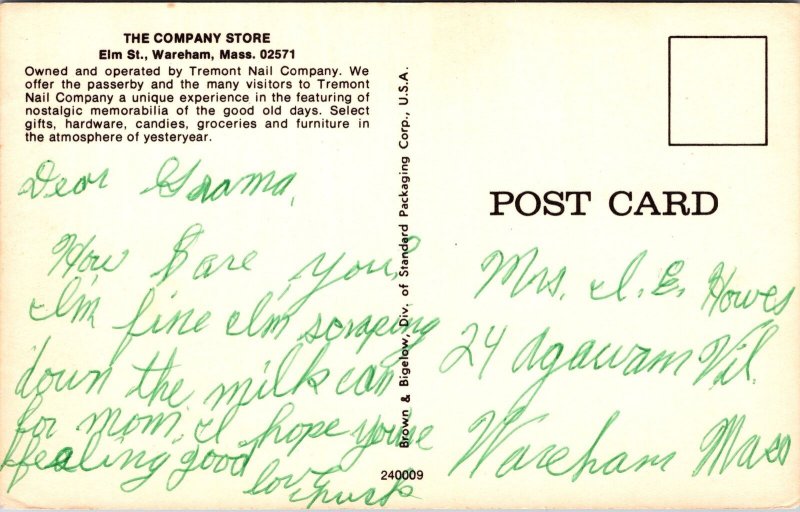 THE COMPANY STORE
Elm St., Wareham, Mass. 02571
Owned and operated by Tremont Nail Company. We
offer the passerby and the many visitors to Tremont
Nail Company a unique experience in the featuring of
nostalgic memorabilia of the good old days. Select
gifts, hardware, candies, groceries and furniture in
the atmosphere of yesteryear.
Dear Grama,
How are you?
I'm fine I'm scraping
down the milk can
for mom, I hope you're
feeling good
love
Brown & Bigelow, Div. of Standard Packaging Corp., U.S.A.
240009
POST CARD
Mrs. I. E. Howes
24 Agawam Vil.
Wareham Mass